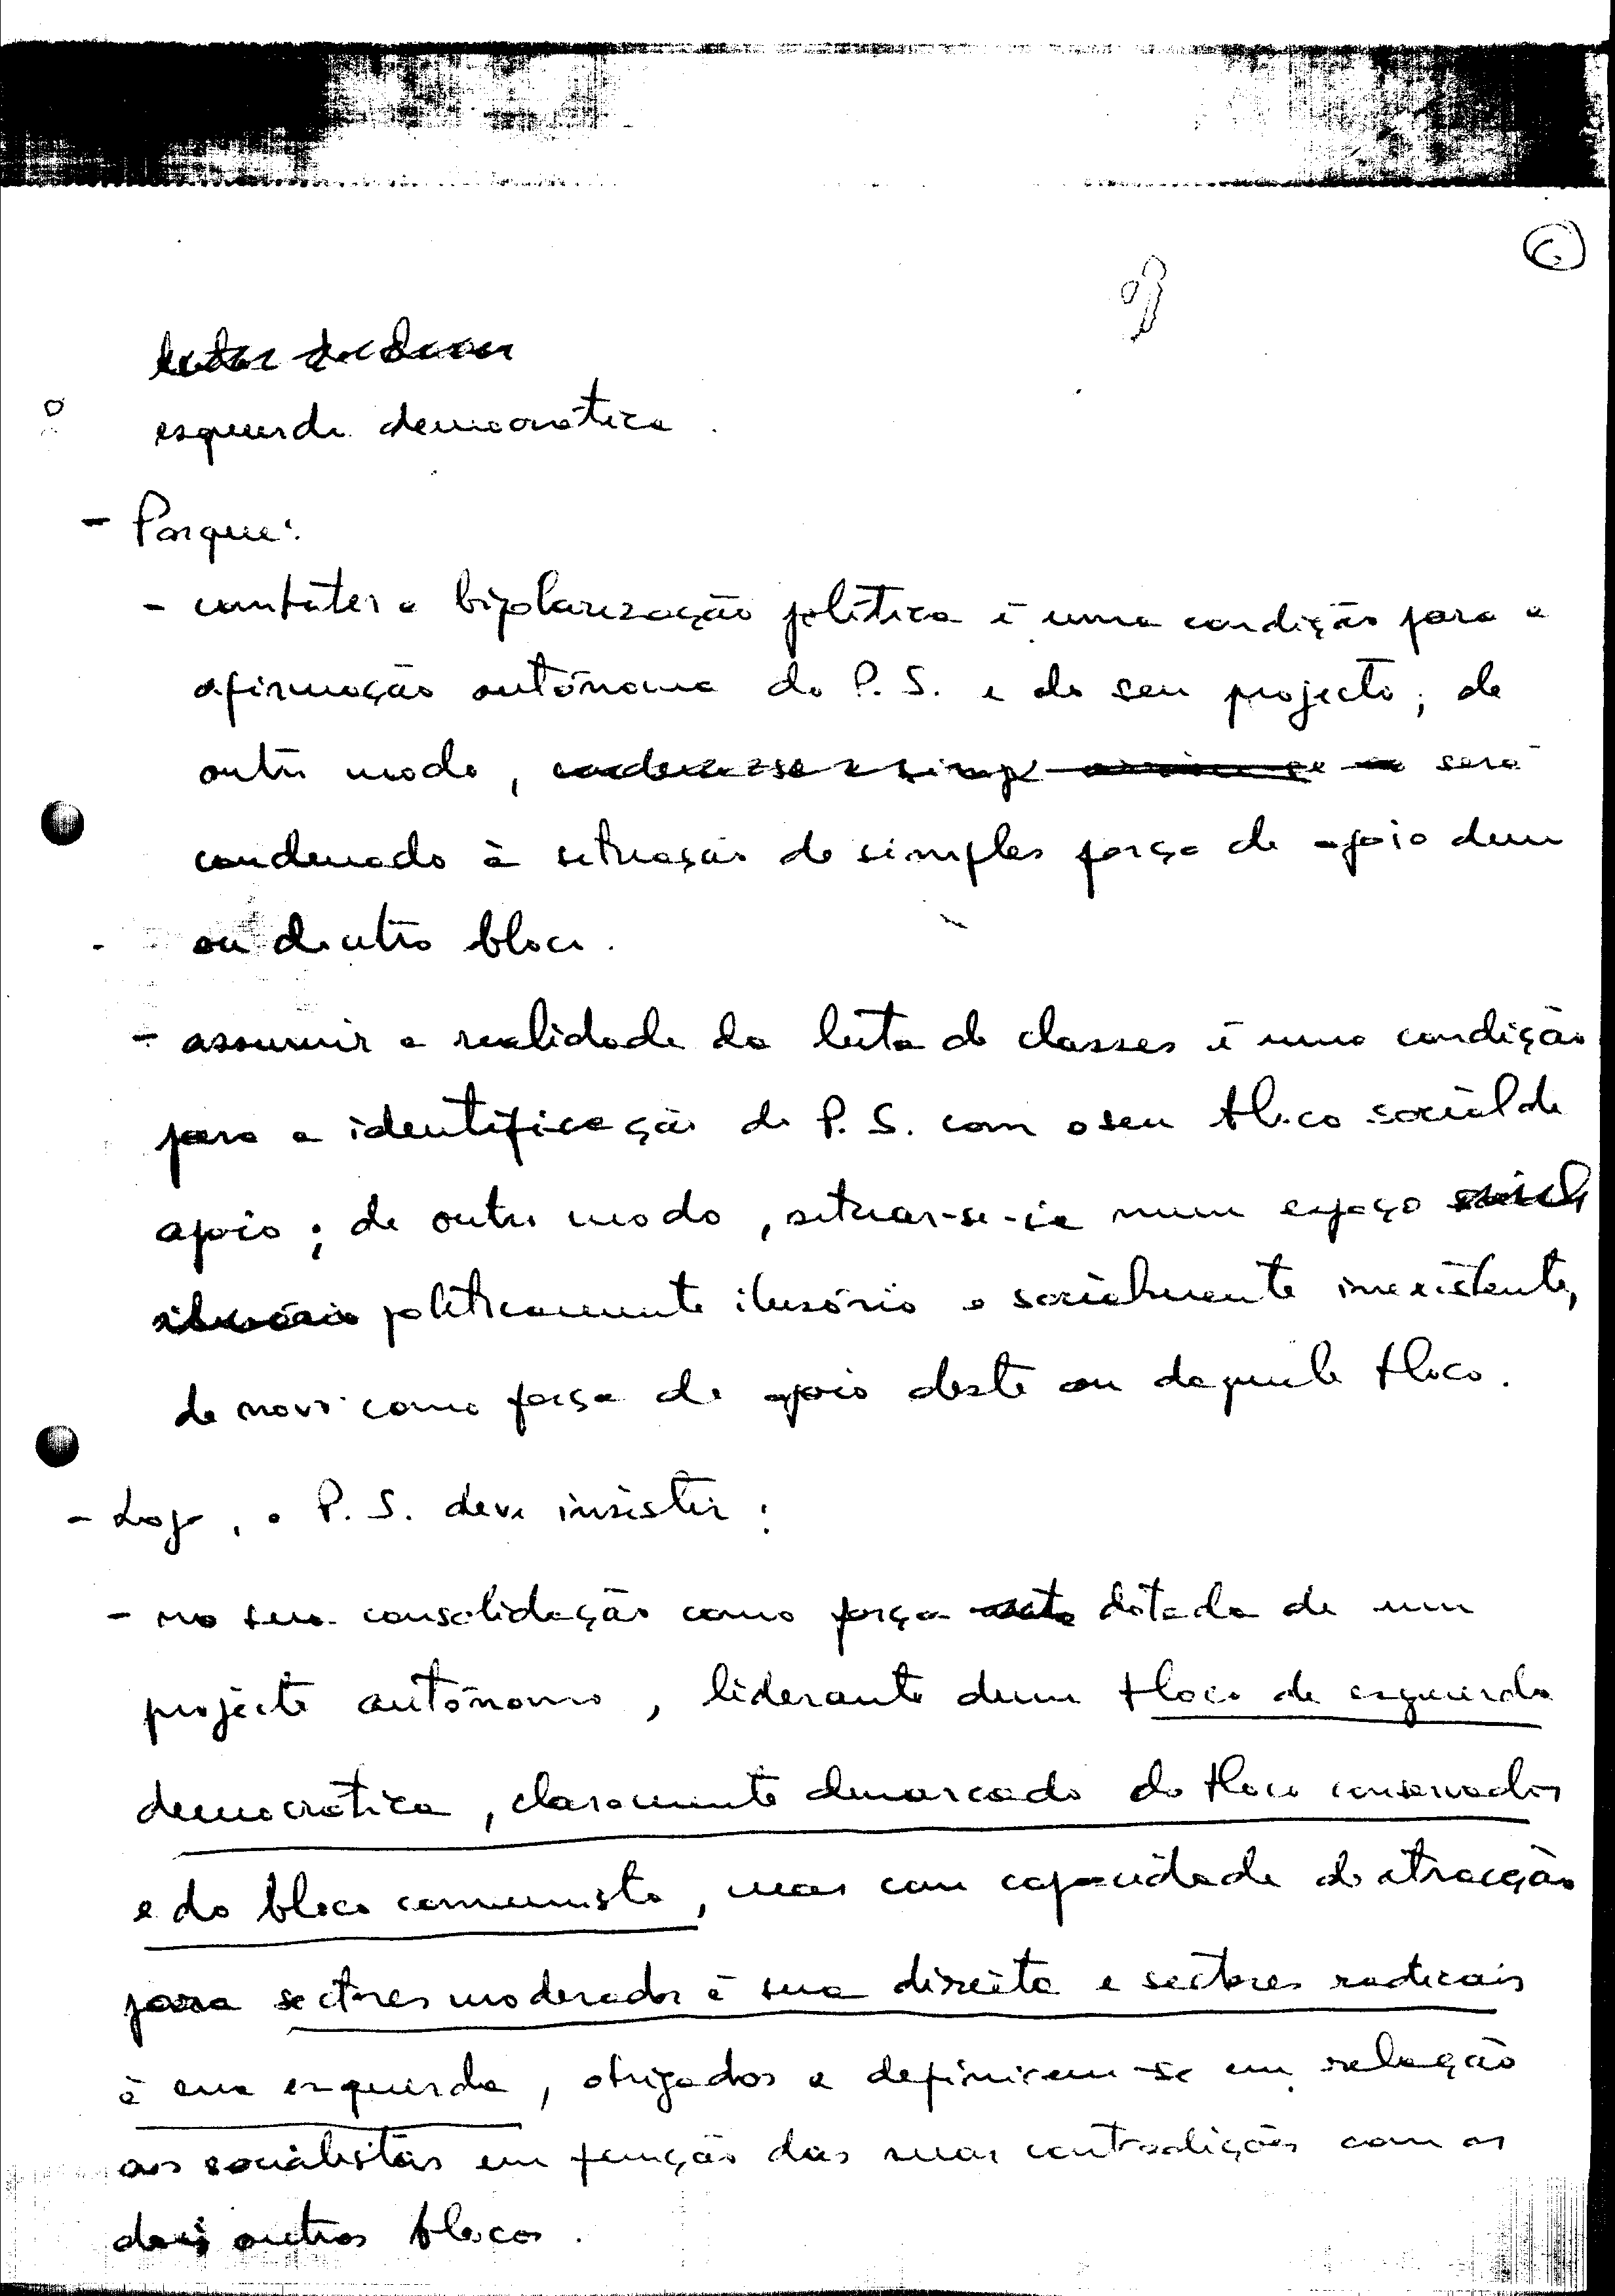 esquerda democrática.
- Porque:
- combater a bipolarização política é uma condição para a
afirmação autónoma do P. S. e do seu projecto; de
outro modo, será
condenado à situação de simples força de apoio dum
ou doutro bloco.
- assumir a realidade da luta de classes é uma condição
para a identificação do P. S. com o seu bloco social de
apoio; de outro modo, situar-se-ia num espaço
politicamente ilusório e socialmente inexistente,
de novo como força de apoio deste ou daquele bloco.
- Logo, o P. S. deve insistir:
- na sua consolidação como força dotada de um
projecto autónomo, liderante dum bloco de esquerda
democrática, claramente demarcado do bloco conservador
e do bloco comunista, mas com capacidade de atracção
para sectores moderados à sua direita e sectores radicais
à sua esquerda, obrigados a definirem-se em relação
aos socialistas em função das suas contradições com os
dois outros blocos.